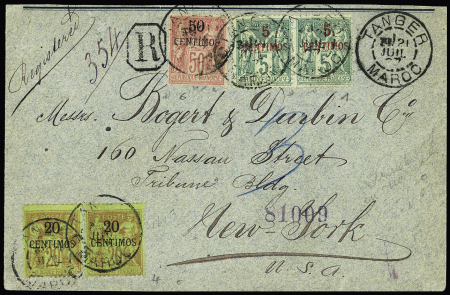 Registered
354
R
50
CENTIMOS
5
CENTIMOS
5
CENTIMOS
TANGER
21
JUIL
MAROC
Messrs. Bogert & Durbin Co
160 Nassau Street
Tribune Bldg.
81009
New-York
U.S.A.
20
CENTIMOS
20
CENTIMOS